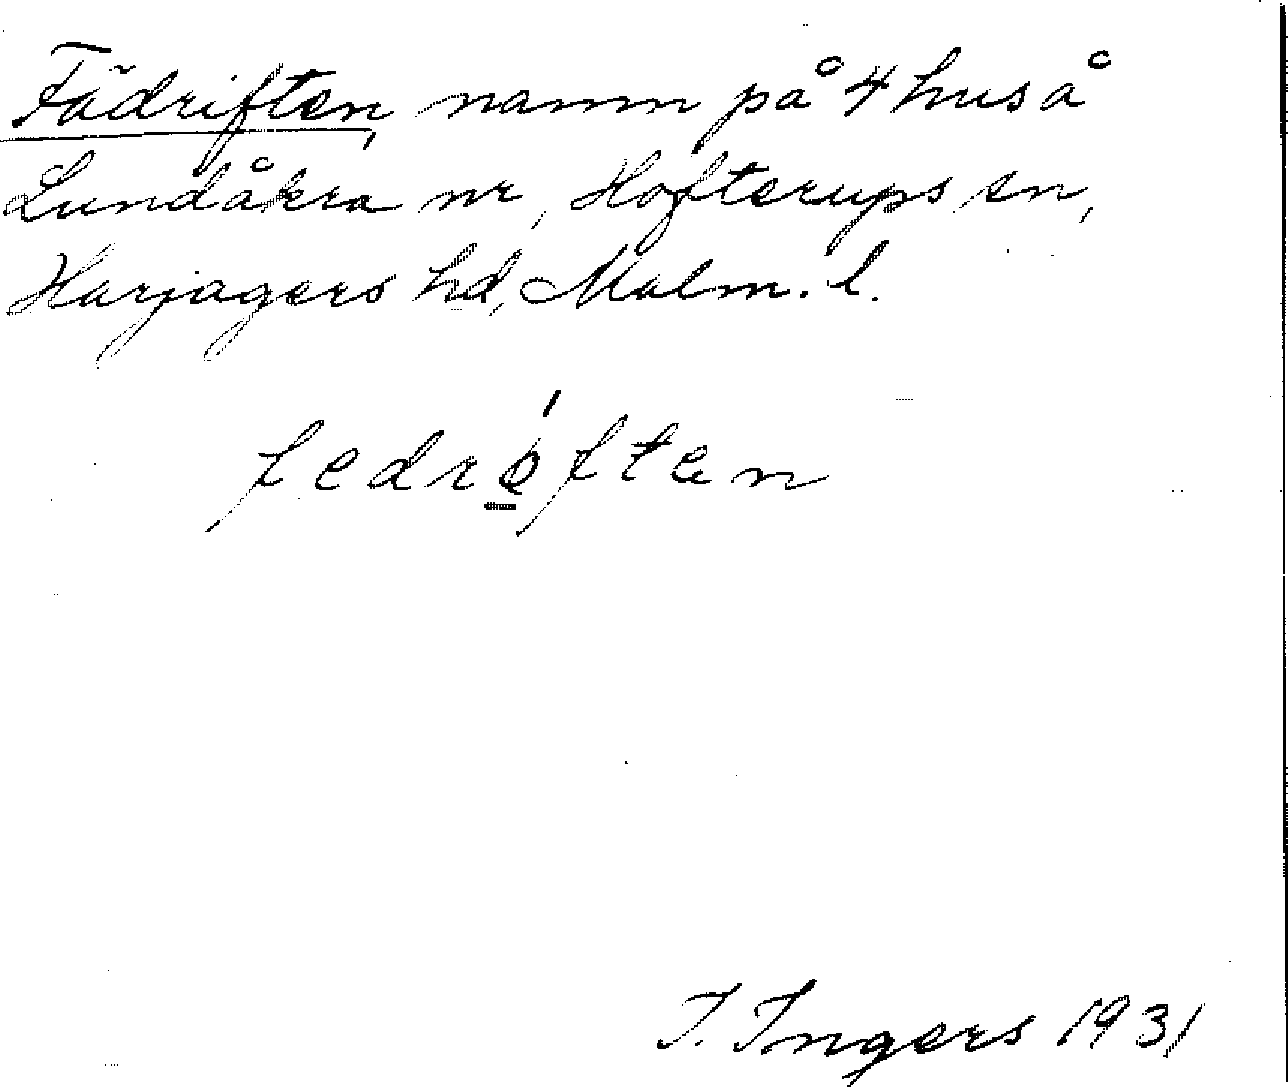 Fädriften, namn på 4 hus å
Lundåkra nr, Hofterups sn,
Harjagers hd, Malm. l.
fedré̱ften
I. Ingers 1931